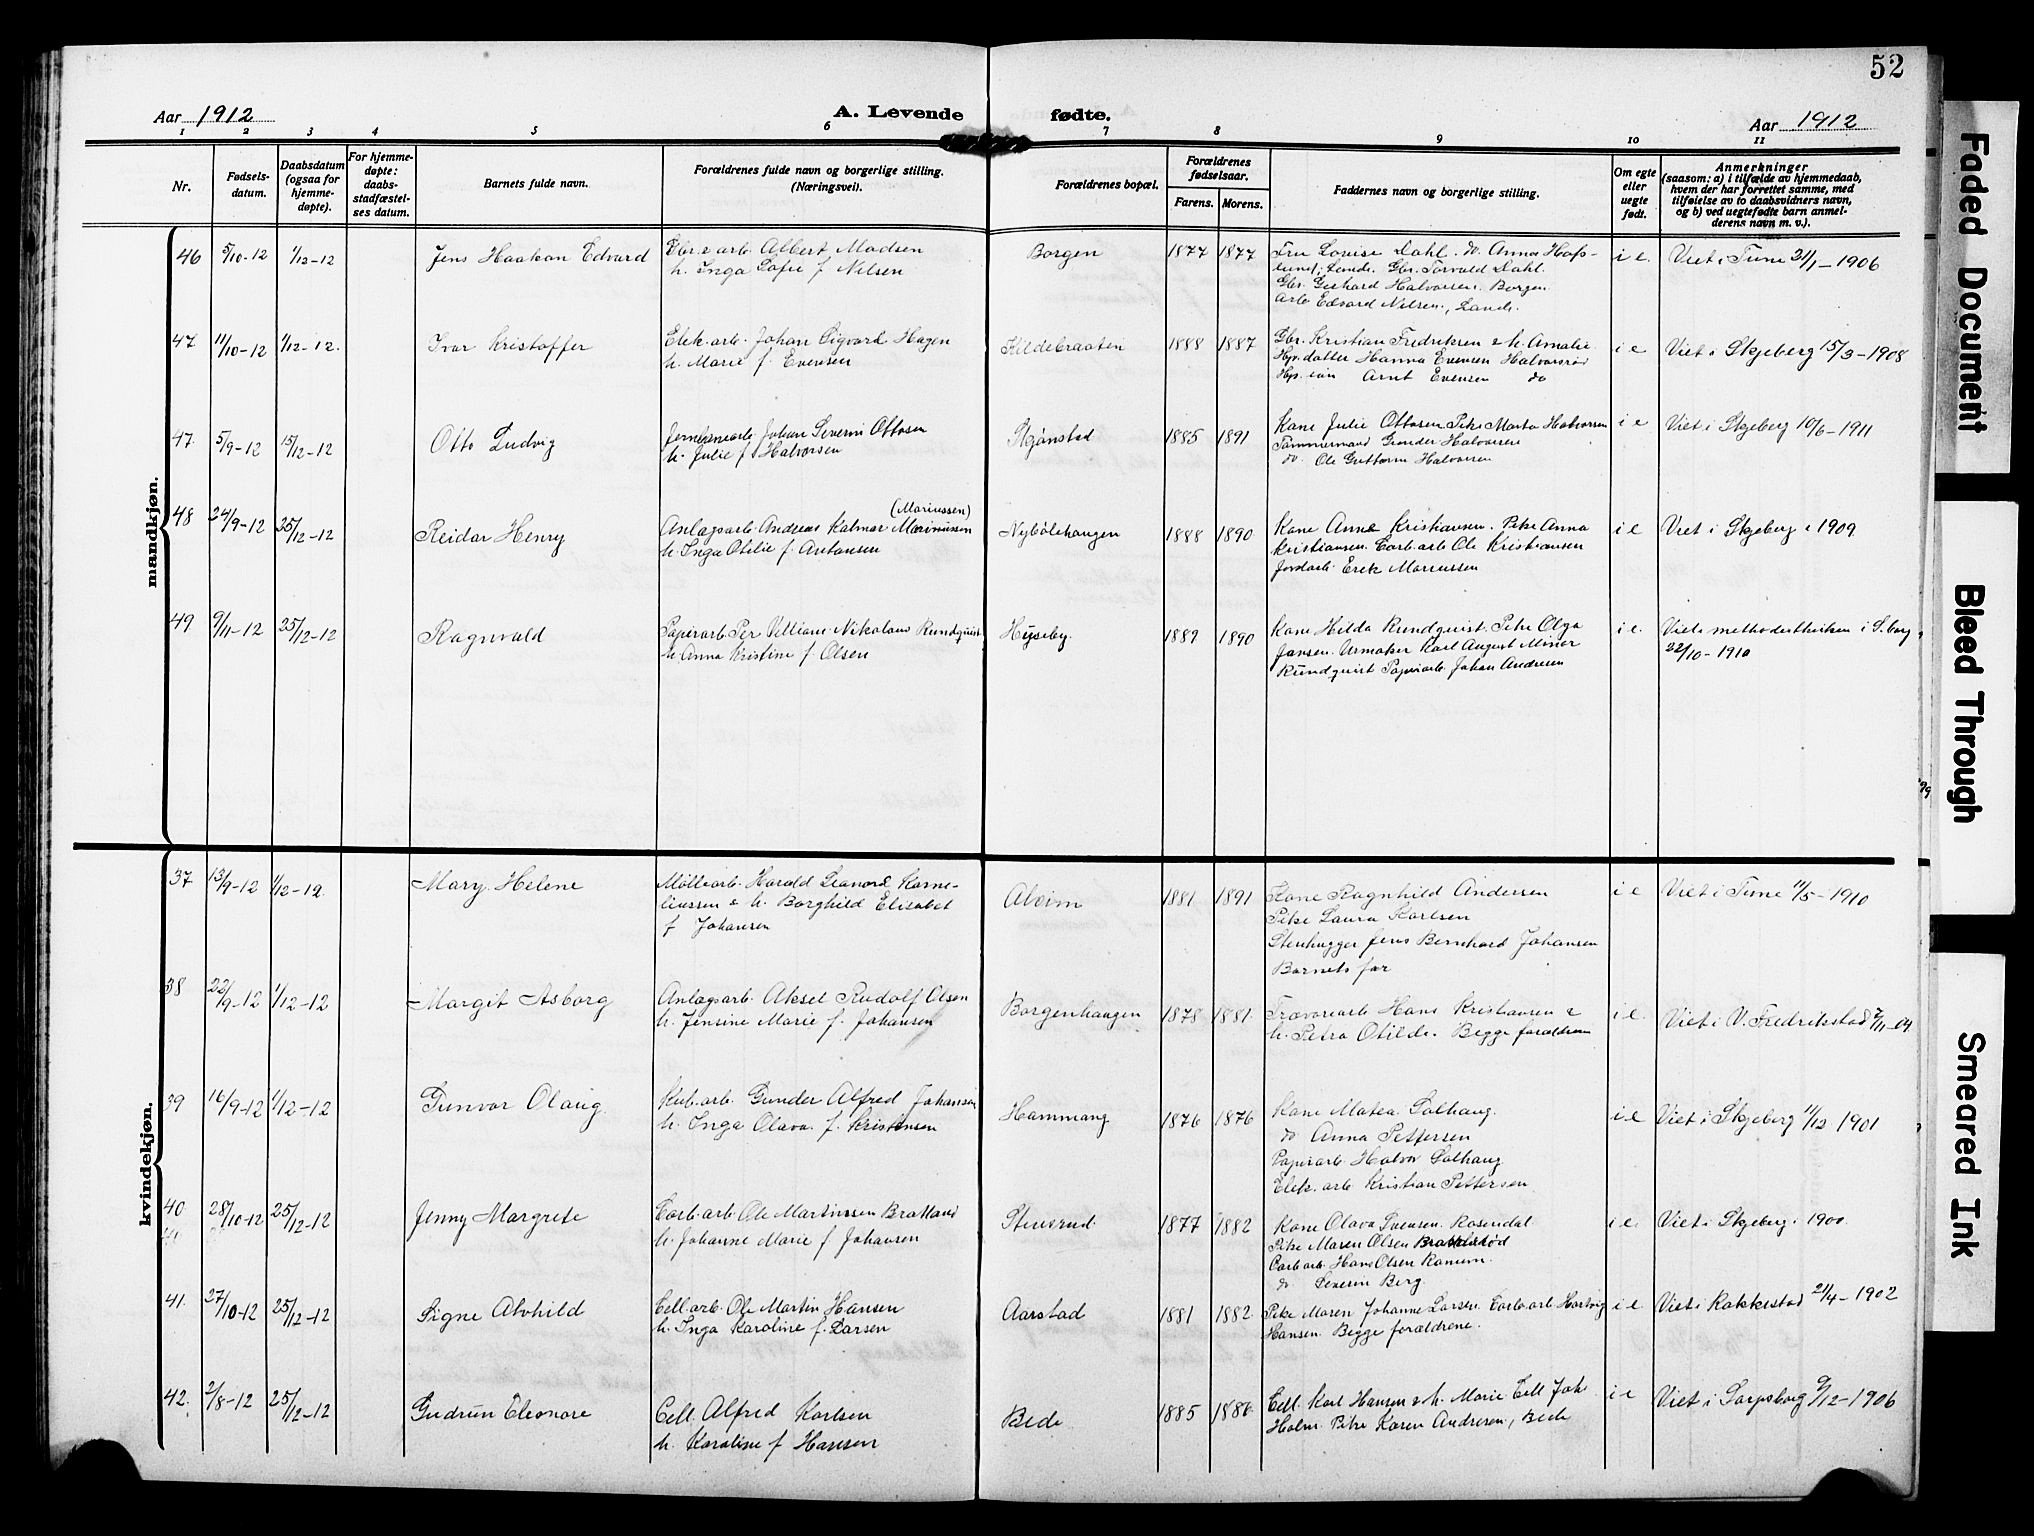 52
Aar 1912
A. Levende fødte.
Aar 1912
1 2 3 4 5 6 7 8 9 10 11
Nr.
Fødsels-
datum.
Daabsdatum
(ogsaa for
hjemme-
døpte).
For hjemme-
døpte:
daabs-
stadfæstel-
ses datum.
Barnets fulde navn.
Forældrenes fulde navn og borgerlige stilling.
(Næringsvei).
Forældrenes bopæl.
Forældrenes
fødselsaar.
Farens. Morens.
Faddernes navn og borgerlige stilling.
Om egte
eller
uegte
født.
Anmerkninger
(saasom: a) i tilfælde av hjemmedaab,
hvem der har forrettet samme, med
tilføielse av to daabsvidners navn,
og b) ved uegtefødte barn anmel-
derens navn m. v.).
mandkjøn.
46 5/10-12 1/12-12 Jens Haakon Edvard
Gbr. & arb. Albert Madsen
h. Inga Sofie f. Nilsen
Borgen 1877 1877
Fru Louise Dahl. do. Anna Hafs-
lund, Lande. Gbr. Torvald Dahl.
Gbr. Gerhard Halvorsen, Borgen
Arb. Edvard Nilsen, Lande.
i e. Viet i Tune 21/1-1906
47 11/10-12 1/12-12. Ivar Kristoffer
Elek.arb. Johan Sigvard Hagen
h. Marie f. Evensen
Kildebraaten 1888 1887
Gbr. Kristian Fredriksen & h. Amalie.
Hps. datter Hanna Evensen Halvorsrød
Hps. søn Arnt Evensen do
i e Viet i Skjeberg 15/3-1908
47. 5/9-12 15/12-12 Otto Ludvig
Jernbanearb. Johan Severin Ottosen
h. Julie f. Halvorsen
Skjønstad 1885 1891
Kone Julie Ottosen. Pike Marta Halvorsen
Tømmermand Gunder Halvorsen
do. Ole Guttorm Halvorsen
i e Viet i Skjeberg 10/6-1911
48 24/9-12 25/12-12 Reidar Henry
(Mariussen)
Anlægsarb. Andreas Kalmar Marinussen
h. Inga Otilie f. Antonsen
Nybølehaugen 1888 1890
Kone Anne Kristiansen. Pike Anna
Kristiansen. Carb.arb. Ole Kristiansen
Jordarb. Erek Mariussen
i e Viet i Skjeberg i 1909
49 9/11-12 25/12-12 Ragnvald
Papirarb. Per Villiam Nikolaus Rundquist
h. Anna Kristine f. Olsen
Hyseby. 1889 1890
Kone Hilda Rundquist. Pike Olga
Jansen. Urmaker Karl August Minor
Rundquist Papirarb. Johan Andresen
i e. Viet i methodistkirken i S.borg
22/10-1910
kvindekjøn.
37 13/9-12 1/12-12. Mary Helene
Møllearb. Harald Leonard Korne-
liussen & h. Borghild Elisabet
f. Johansen
Alvim 1881 1891
Kone Ragnhild Andersen
Pike Laura Karlsen
Stenhugger Jens Bernhard Johansen
Barnets far
i e Viet i Tune 11/5-1910
38 22/9-12 1/12-12 Margit Asborg
Anlægsarb. Aksel Rudolf Olsen
h. Jensine Marie f. Johansen
Borgenhaugen 1878 1881.
Trævarearb. Hans Kristiansen &
h. Petra Otilde. Begge forældrene
i e. Viet i V. Fredrikstad 2/11-04
39 16/9-12 1/12-12 Gunvor Olaug
Kub.arb. Gunder Alfred Johansen
h. Inga Olava f. Kristensen
Hammang 1876 1876
Kone Matea Solhaug.
do Anna Pettersen
Papirarb. Halvor Solhaug
Elek. arb. Kristian Pettersen
i e Viet i Skjeberg 11/12 1901
40 28/10-12 25/12-12 Jenny Margrete
Carb.arb. Ole Martinssen Bratland
h. Johanne Marie f. Johansen
Stensrud. 1877 1882
Kone Olava Svensen. Rosendal
Pike Maren Olsen
Carb.arb. Hans Olsen Ranum.
do Severin Berg.
i e. Viet i Skjeberg i 1900.
41. 27/10-12 25/12-12 Signe Alvhild
Cell.arb. Ole Martin Hansen
h. Inga Karoline f. Larsen
Aarstad 1881 1882
Pike Maren Johanne Larsen. Carb.arb. Hartvig
Hansen. Begge forældrene.
i e Viet i Rakkestad 21/4-1902
42. 2/8-12 25/12-12 Gudrun Eleonore
Cell. Alfred Karlsen
h. Karoline f. Hansen
Bede 1885 1886
Cell. Karl Hansen & h. Marie. Cell. Joh.
Holm. Pike Karen Andresen, Bede
i e Viet i Sarpsborg 9/12-1906
Faded Document
Bleed Through
Smeared Ink